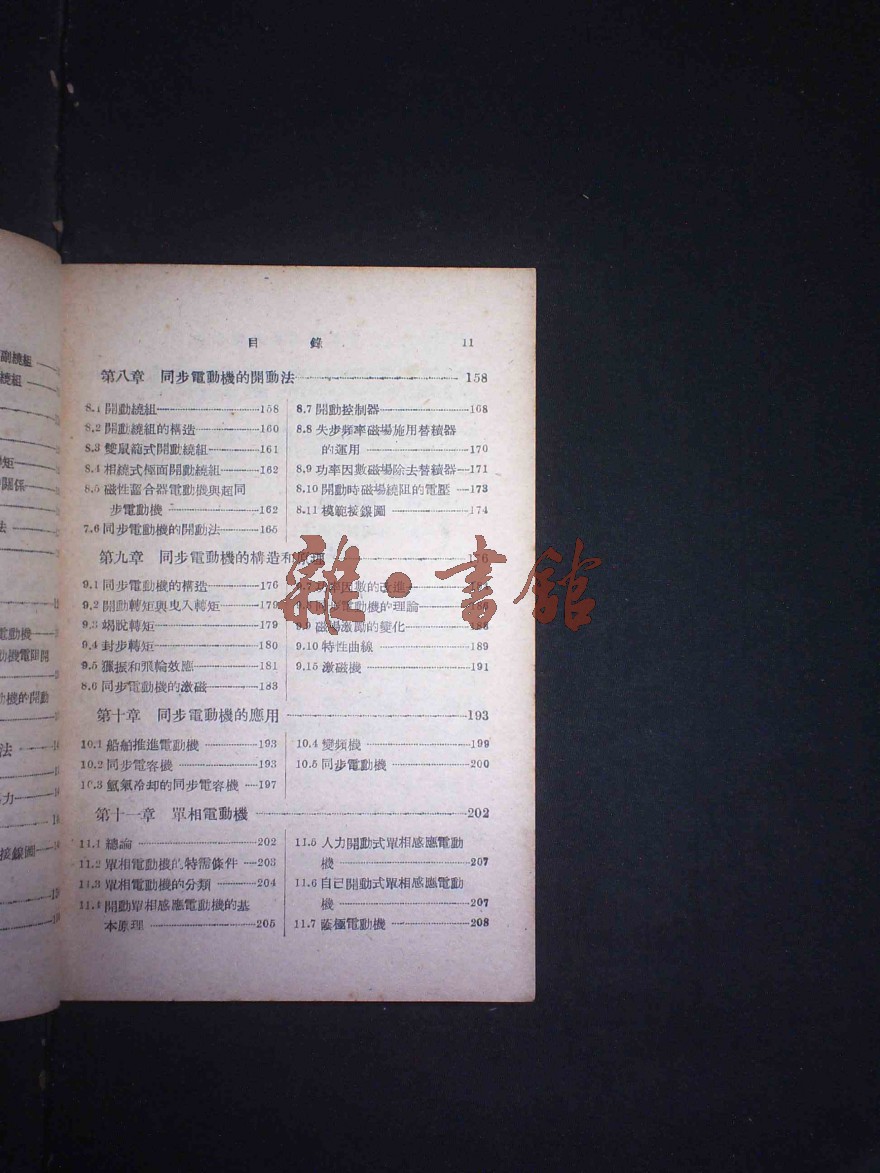 目 錄 11
第八章 同步電動機的開動法 158
8.1 開動繞組 158
8.2 開動繞組的構造 160
8.3 雙鼠籠式開動繞組 161
8.4 相繞式極面開動繞組 162
8.5 磁性離合器電動機與超同
步電動機 162
7.6 同步電動機的開動法 165
8.7 開動控制器 168
8.8 失步頻率磁場施用替續器
的運用 170
8.9 功率因數磁場除去替續器 171
8.10 開動時磁場繞阻的電壓 173
8.11 模範接線圖 174
第九章 同步電動機的構造和原理 176
9.1 同步電動機的構造 176
9.2 開動轉矩與曳入轉矩 179
9.3 竭脫轉矩 179
9.4 封步轉矩 180
9.5 獵振和飛輪效應 181
8.6 同步電動機的激磁 183
9.7 功率因數的改進
9.8 同步電動機的理論 186
9.9 磁場激勵的變化 188
9.10 特性曲線 189
9.15 激磁機 191
第十章 同步電動機的應用 193
10.1 船舶推進電動機 193
10.2 同步電容機 193
10.3 氫氣冷却的同步電容機 197
10.4 變頻機 199
10.5 同步電動機 200
第十一章 單相電動機 202
11.1 總論 202
11.2 單相電動機的特需條件 203
11.3 單相電動機的分類 204
11.4 開動單相感應電動機的基
本原理 205
11.5 人力開動式單相感應電動
機 207
11.6 自己開動式單相感應電動
機 207
11.7 蔽極電動機 208
雜·書館